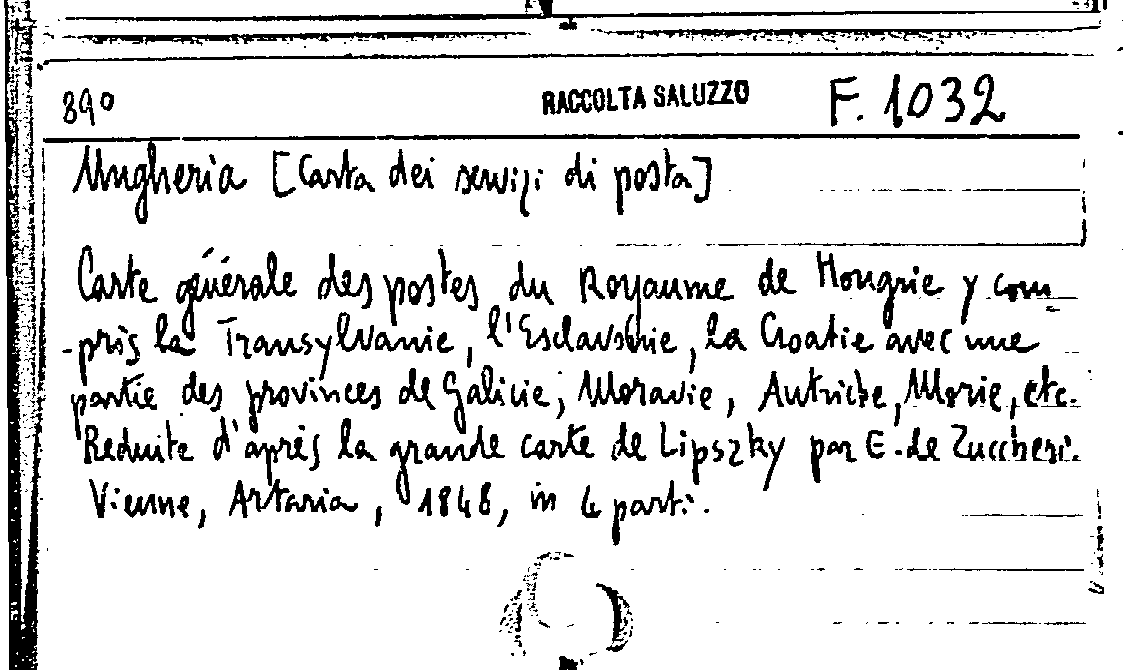 89º RACCOLTA SALUZZO F. 1032
Ungheria [Carta dei servizi di posta]
Carte générale des postes du Royaume de Hongrie y com
-pris la Transylvanie, l'Esclavonie, la Croatie avec une
partie des provinces de Galicie, Moravie, Autriche, Morie, etc.
Reduite d'après la grande carte de Lipszky par E. de Zuccheri.
Vienne, Artaria, 1848, in 4 parti.